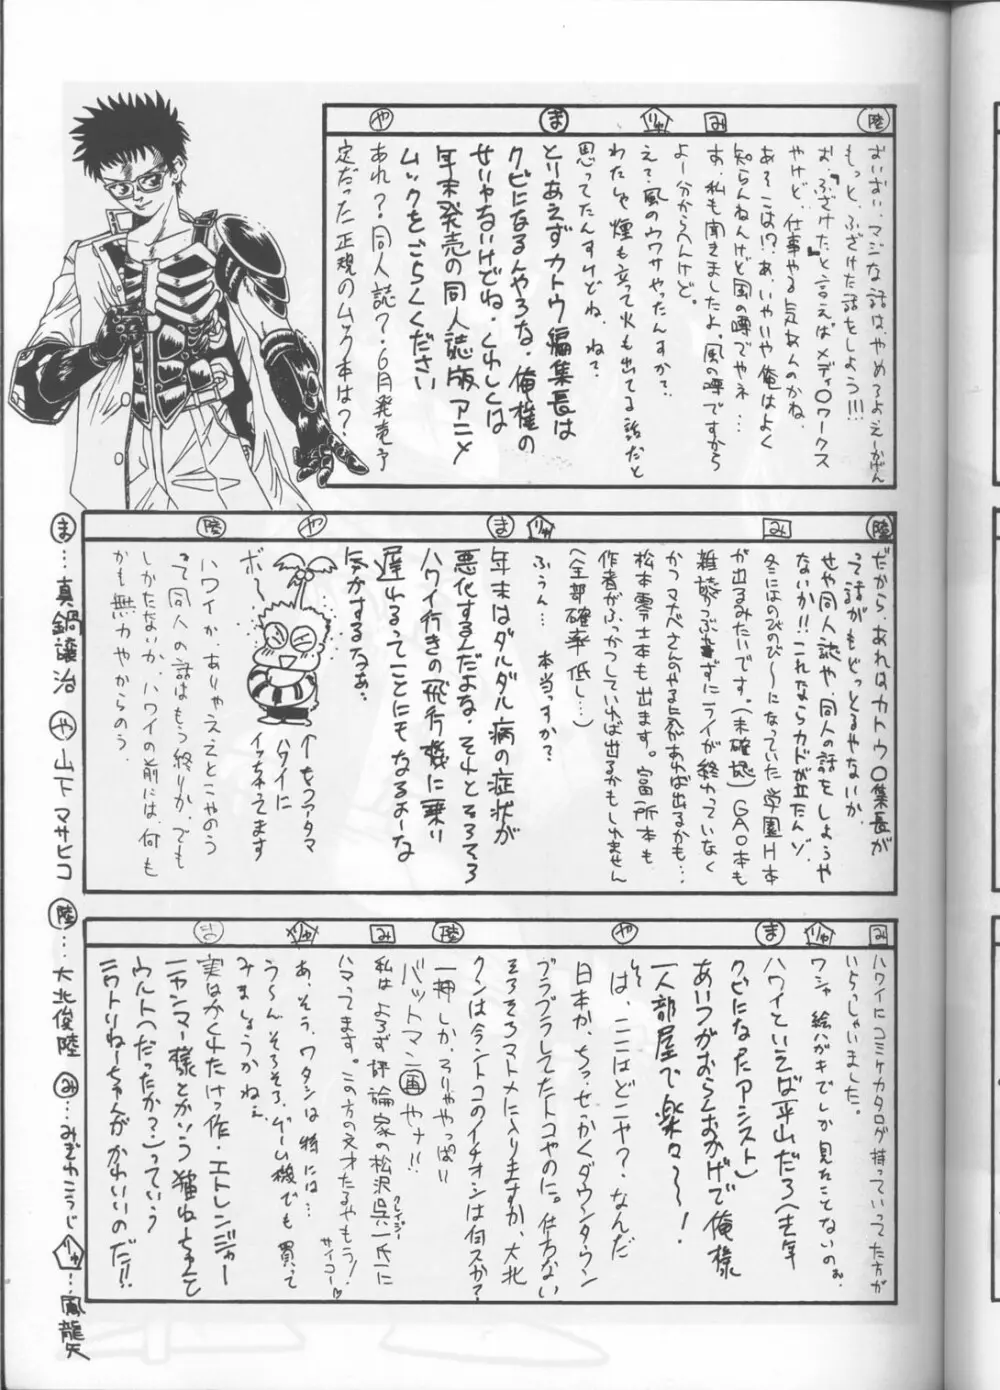 陸
おいおい、マジな話は、やめろよえーかげん
もっと、ふざけた話をしよう!!!
お、『ふざけた』と言えばメディ〇ワークス
やけど、仕事やる気あんのかね、
み
あそこは!?あ、いやいや俺はよく
知らんねんけど風の噂でやネ…
あ、私も聞きましたよ。風の噂ですから
よー分からへんけど。
りゅ
え?風のウワサやったんすか?
わたしゃ煙も立って火も出てる話だと
思ってたんすけどね、ねて
ま
とりあえずカトウ編集長は
クビになるんやろな、俺様の
せいやないけどね。くわしくは
年末発売の同人誌版アニメ
ムックをごらくください
や
あれ?同人誌?6月発売予
定だった正規のムック本は?
陸
だから、あれはカトウ〇集長が
って話がもどっとるやないか、
せや同人誌や、同人の話をしようや
ないか!!これならカドが立たんゾ、
み
冬にはのびのび〜になっていた学園H本
が出るみたいです。(未確認)GAO本も
雑誌つぶれずにライが終わっていなく
かつマナベさんのやる気があれば出るかも…
松本零士本も出ます。富所本も
作者がふっかつしていれば出るかもしれません
(全部確率低し…)
りゅ
ふぅん… 本当っすか?
ま
年末はダルダル病の症状が
悪化するんだよな、それとそろそろ
ハワイ行きの飛行機に乗り
遅れるってことにもなるよーな
気がするなぁ…
や
ボ〜
↑もうアタマ
ハワイに
イっちゃってます
陸
ハワイか、ありゃええとこやのう
って同人の話はもう終りか、でも
しかたないか、ハワイの前には、何も
かも無力やからのう、
み
ハワイにコミケカタログ持っていってた方が
いらっしゃいました。
りゅ
ワシャ絵ハガキでしか見たことないのぉ、
ま
ハワイといえば平山だろ(去年
クビになったアシスト)
あいつがおらんおかげで俺様
一人部屋で楽々〜〜!
や
は、ここはどこヤ?なんだ
日本か、ちっ、せっかくダウンタウン
ブラブラしてたトコやのに。仕方ない
そろそろマトメに入りますか、大北
クンは今、ントコのイチオシは何スか?
陸
一押しか、そりゃやっぱり
バットマン画やナ!!
み
私はよろず評論家の松沢呉一氏に
クレイジー
ハマってます。この方の文才たるやもう!
サイコー♡
りゅ
あ、そう、ワタシは特には…
うーん、そろそろ、ゲーム機でも買って
みましょうかねぇ
ま
実はかくれたけっ作・エトレンジャー
ニャンマー様とかいう猫ねーちゃんと
ウルト(だったか?)っていう
ニワトリねーちゃんがかわいいのだ!!
ま…真鍋譲治 や山下マサヒコ 陸…大北俊陸 み…みぞわこうじ りゅ…鳳龍矢